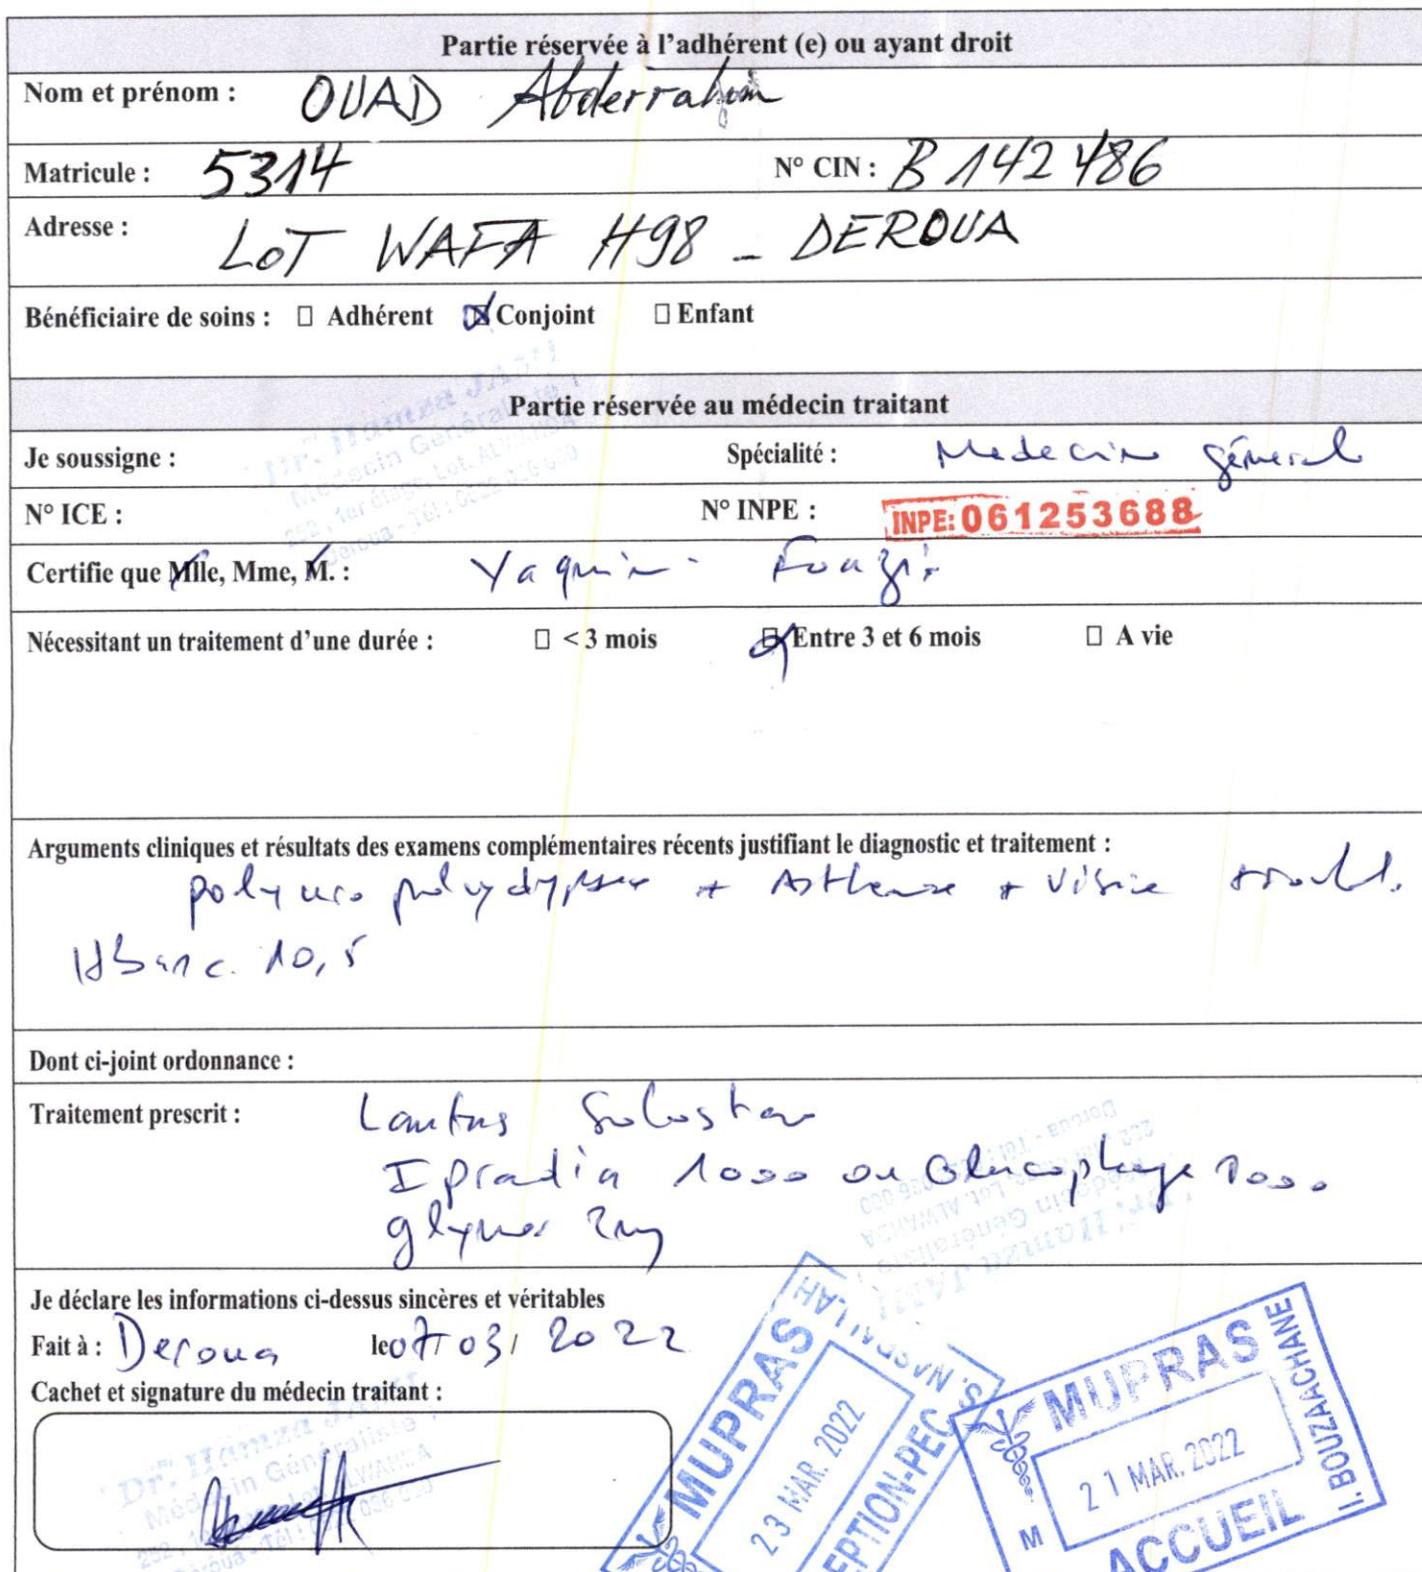 Partie réservée à l'adhérent (e) ou ayant droit
Nom et prénom : OUAD Abderrahim
Matricule : 5314 N° CIN : B 142486
Adresse : LOT WAFA H98 - DEROUA
Bénéficiaire de soins : ☐ Adhérent ☒ Conjoint ☐ Enfant
Partie réservée au médecin traitant
Je soussigne : Dr. Hamza Spécialité : Medecine général
Médecin Généraliste
252, 1er étage, Lot. ALWAHDA
Deroua - Tél : 0522 036 000
N° ICE : N° INPE : INPE: 061253688
Certifie que Mlle, Mme, M. : Yaqmin
Nécessitant un traitement d'une durée : ☐ < 3 mois ☒ Entre 3 et 6 mois ☐ A vie
Arguments cliniques et résultats des examens complémentaires récents justifiant le diagnostic et traitement :
+ Asthenie + Vision
10,5
Dont ci-joint ordonnance :
Traitement prescrit : Lantus Solostar
Ipradia 1000 ou Glucophage 1000
2mg
Je déclare les informations ci-dessus sincères et véritables
Fait à : Deroua le 07/03/2022
Cachet et signature du médecin traitant :
Dr. Hamza
Médecin Généraliste
MUPRAS
23 MAR. 2022
MUPRAS
21 MAR. 2022
ACCUEIL
I. BOUZAACHANE